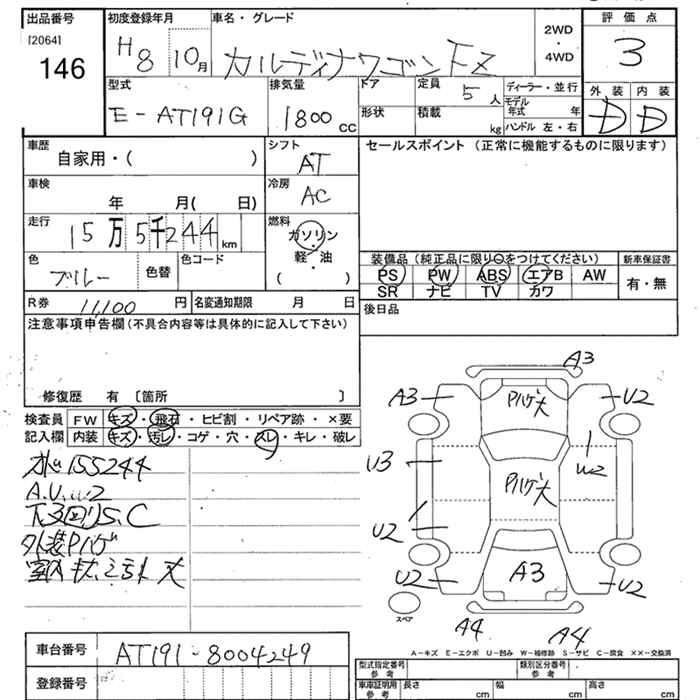 出品番号
[2064]
146
初度登録年月
H8 10月
車名・グレード
カルディナワゴン FZ
2WD
・
4WD
評価点
3
型式
E-AT191G
排気量
1800 CC
ドア
形状
定員 5 人
積載 kg
ディーラー・並行
モデル年式 年
ハンドル 左・右
外装 内装
D D
車歴
自家用・( )
シフト
AT
セールスポイント (正常に機能するものに限ります)
車検
年 月( 日)
冷房
AC
走行
15万5千244km
燃料
ガソリン
軽・油
( )
色
ブルー
色替
色コード
装備品(純正品に限り○をつけてください)
新車保証書
PS PW ABS エアB AW
SR ナビ TV カワ
有・無
R券 11,100 円
名変通知期限 月 日
後日品
注意事項申告欄(不具合内容等は具体的に記入して下さい)
修復歴 有 〔箇所 〕
検査員
記入欄
FW キズ・飛石・ヒビ割・リペア跡・×要
内装 キズ・汚レ・コゲ・穴・スレ・キレ・破レ
155244
A.U.W2
S.C
外装
A3
A3
U2
U3
W2
U2
U2
U2
A3
A4
A4
スペア
A−キズ E−エクボ U−凹み W−補修跡 S−サビ C−腐食 ××−交換済
車台番号
AT191-8004249
登録番号
型式指定番号
参考
類別区分番号
参考
車庫証明用
参考
長さ cm
幅 cm
高さ cm